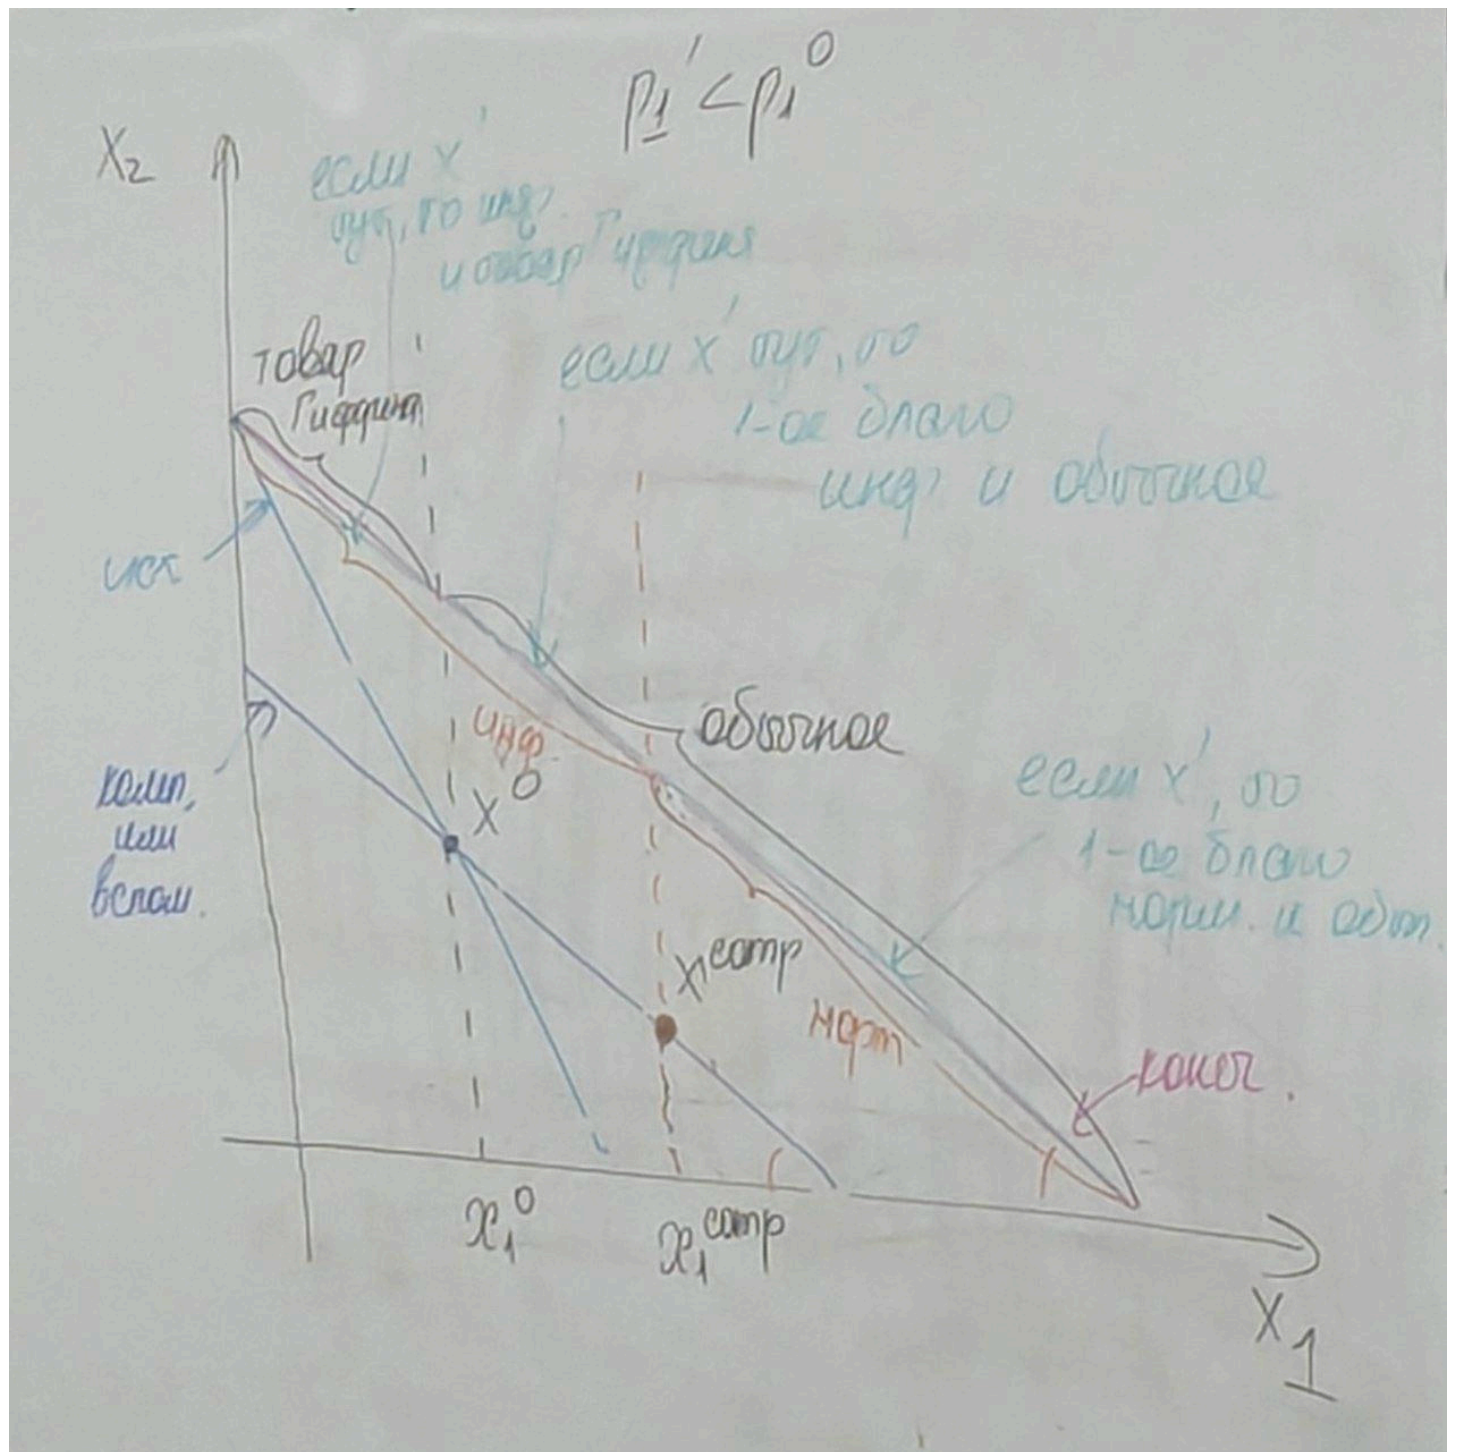 p₁' < p₁⁰
X₂
если x'
тут, то инф.
и товар Гиффина
товар
Гиффина
если x' тут, то
1-ое благо
инф. и обычное
исх
инф.
обычное
комп.
или
вспом.
X⁰
если x', то
1-ое благо
норм. и
X^comp
норм
конеч.
x₁⁰
x₁^comp
X₁